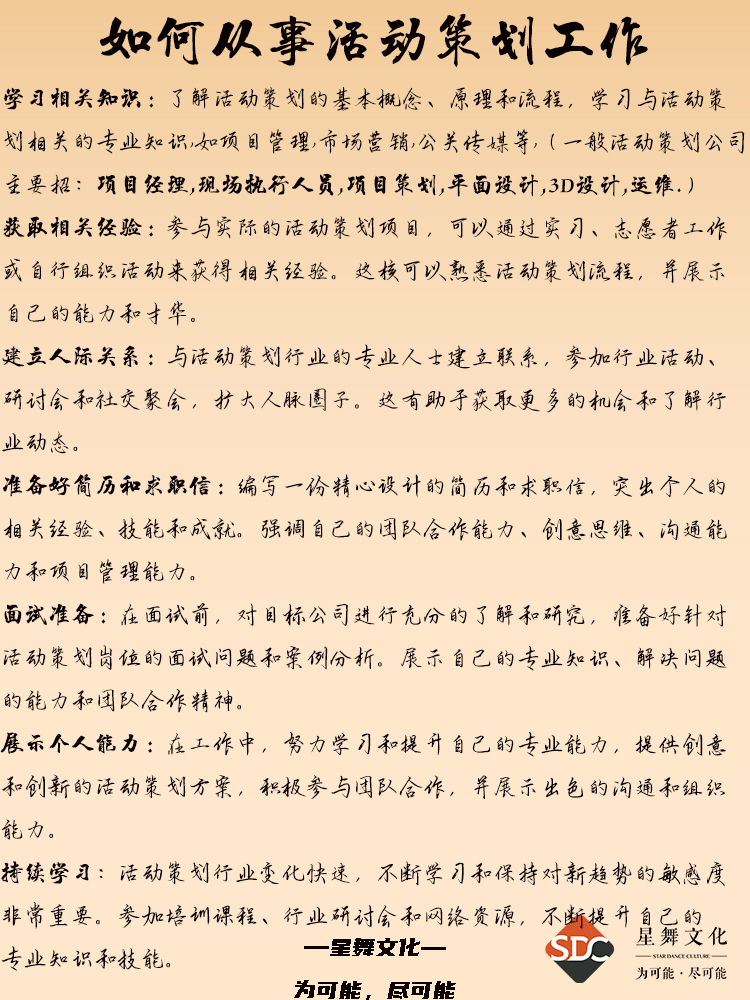 如何从事活动策划工作
学习相关知识：了解活动策划的基本概念、原理和流程，学习与活动策
划相关的专业知识,如项目管理,市场营销,公关传媒等,（一般活动策划公司
主要招：项目经理,现场执行人员,项目策划,平面设计,3D设计,运维.）
获取相关经验：参与实际的活动策划项目，可以通过实习、志愿者工作
或自行组织活动来获得相关经验。这核可以熟悉活动策划流程，并展示
自己的能力和才华。
建立人际关系：与活动策划行业的专业人士建立联系，参加行业活动、
研讨会和社交聚会，扩大人脉圈子。这有助于获取更多的机会和了解行
业动态。
准备好简历和求职信：编写一份精心设计的简历和求职信，突出个人的
相关经验、技能和成就。强调自己的团队合作能力、创意思维、沟通能
力和项目管理能力。
面试准备：在面试前，对目标公司进行充分的了解和研究，准备好针对
活动策划岗位的面试问题和案例分析。展示自己的专业知识、解决问题
的能力和团队合作精神。
展示个人能力：在工作中，努力学习和提升自己的专业能力，提供创意
和创新的活动策划方案，积极参与团队合作，并展示出色的沟通和组织
能力。
持续学习：活动策划行业变化快速，不断学习和保持对新趋势的敏感度
非常重要。参加培训课程、行业研讨会和网络资源，不断提升自己的
专业知识和技能。
—星舞文化—
为可能，尽可能
SDC
星舞文化
STAR DANCE CULTURE
为可能·尽可能